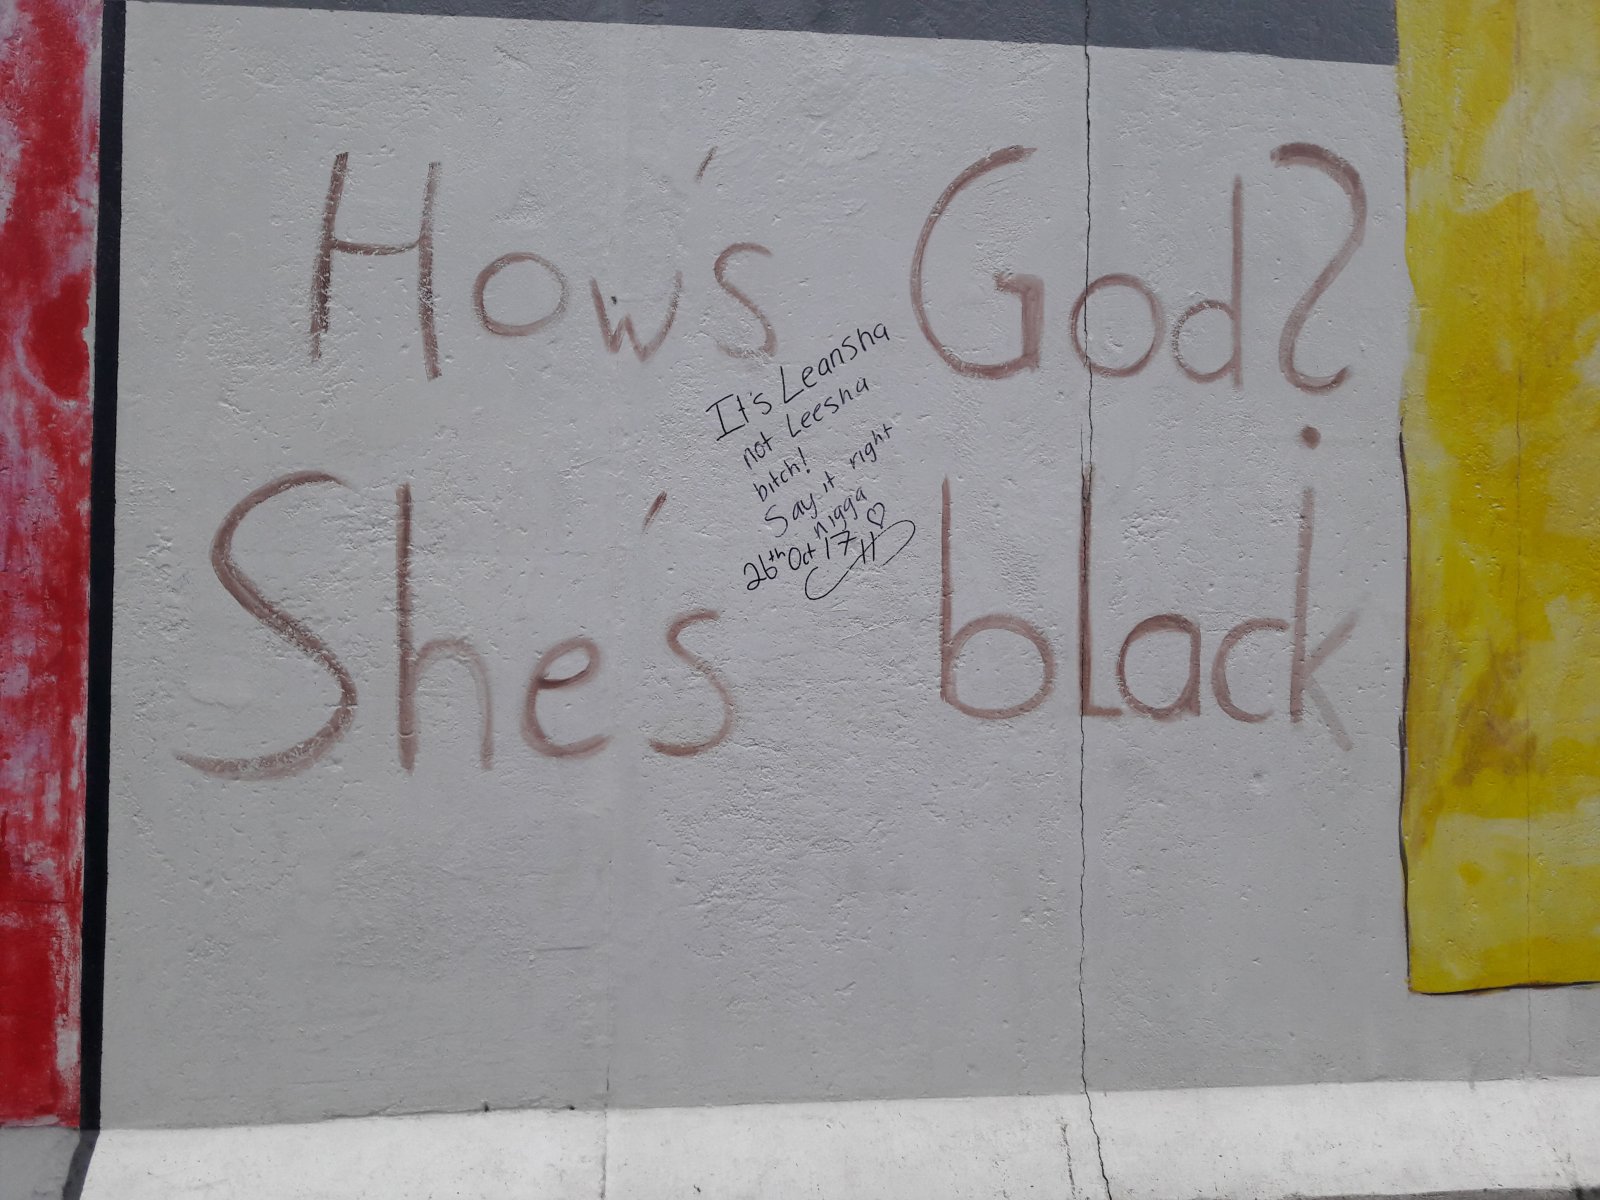 How's God?
She's bLack
It's Leansha
not Leesha
bitch!
Say it right
nigga
26th Oct 17 ♡